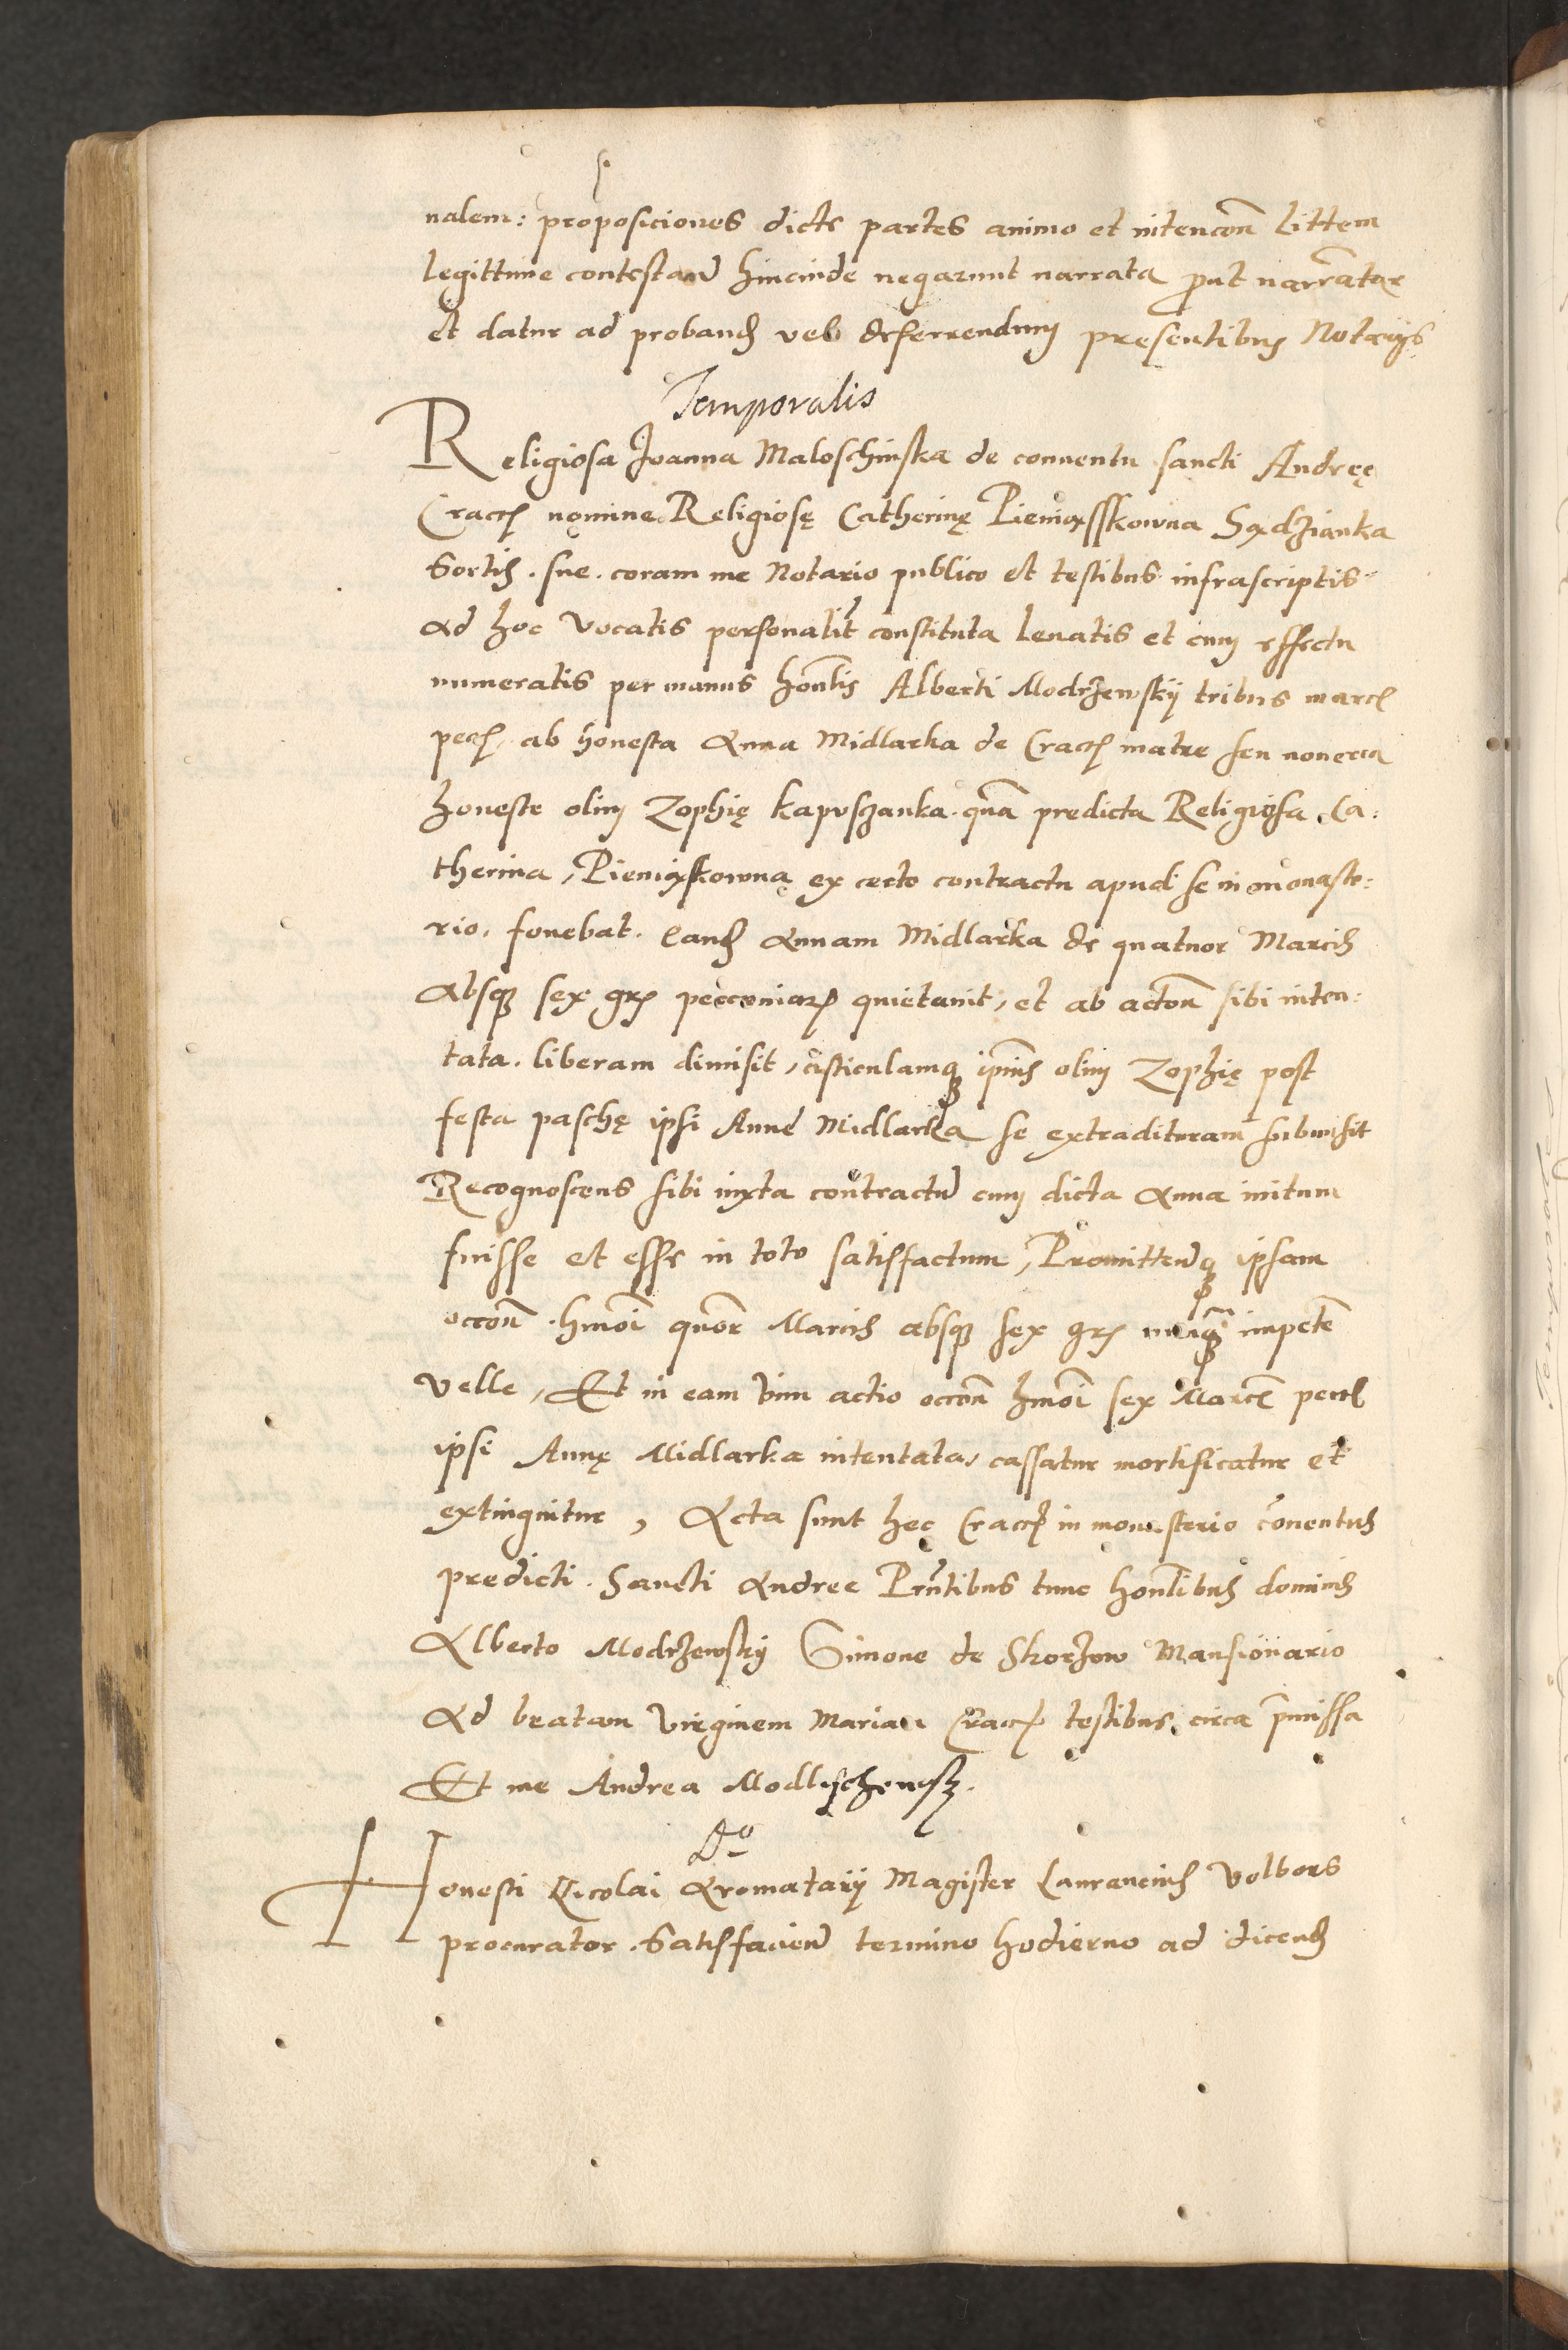 nalem: proposiciones dicte partes animo et intencōn littem
legittime contestand hincinde negarunt narrata prout narrātar
et datur ad proband vel deferrendum presentibus Notarijs
Temporalis
Religiosa Joanna Maloschinska de conuentu sancti Andreę
Cracoῤ nomine Religiosę Catherinę Pieniąsskowna Sądzianka
Sortis. sue. coram me Notario publico et testibus infrascriptis
Ad hoc vocatis personalit̄ constituta leuatis et cum effectu
numeratis per manus hon̄tis Alberti Modrzewskij tribus marc
pecῤ, ab honesta Anna Midlarka de Cracoῤ matre seu nouerca
honeste olim Zophię kapusczanka. quā predicta Religiosa Ca:
therina, Pieniąskowną ex certo contractu apud se in monaste:
rio. fouebat. eand Annam Midlarka de quatuor Marcis
absq sex grῤ pecconiarῤ quietauit, et ab actōn sibi inten:
tata. liberam dimisit, cisticulamq ip̄ius olim Zophię post
festa paschę ipsi Anne Midlarka se extradituram submisit
Recognoscens sibi iuxta contractū cum dicta Anna initum
fuisse et esse in toto satisfactum, Promittendq ipsam
occōn hmōi quōr Marcis absq sex grῤ nūq impetē
velle, Et in eam vim actio occōn hmōi sex Marcῤ pecc
ipsi Annę Midlarka intentata, cassatur mortificatur et
extinguitur, Acta sunt hęc Cracoῤ in monasterio cōuentus
predicti. Sancti Andree Prn̄tibus tunc hon̄tibus dominis
Alberto Modrzewskij Simone de Skorzow Mansionario
Ad beatam virginem Mariam Cracoῤ testibus circa p̄missa
Et me Andrea Modlischewsky.
Honesti Nicolai Aromatarij Magister Laurencius Volbors
procurator. Satisfaciend termino hodierno ad dicend